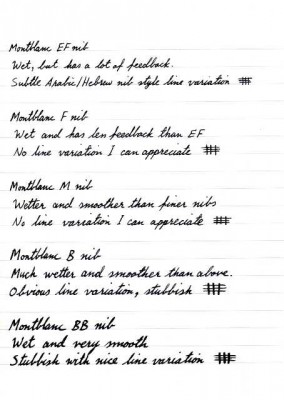 Montblanc EF nib
Wet, but has a lot of feedback.
Subtle Arabic/Hebrew nib style line variation
Montblanc F nib
Wet and has less feedback than EF
No line variation I can appreciate
Montblanc M nib
Wetter and smoother than finer nibs
No line variation I can appreciate
Montblanc B nib
Much wetter and smoother than above.
Obvious line variation, stubbish
Montblanc BB nib
Wet and very smooth
Stubbish with nice line variation